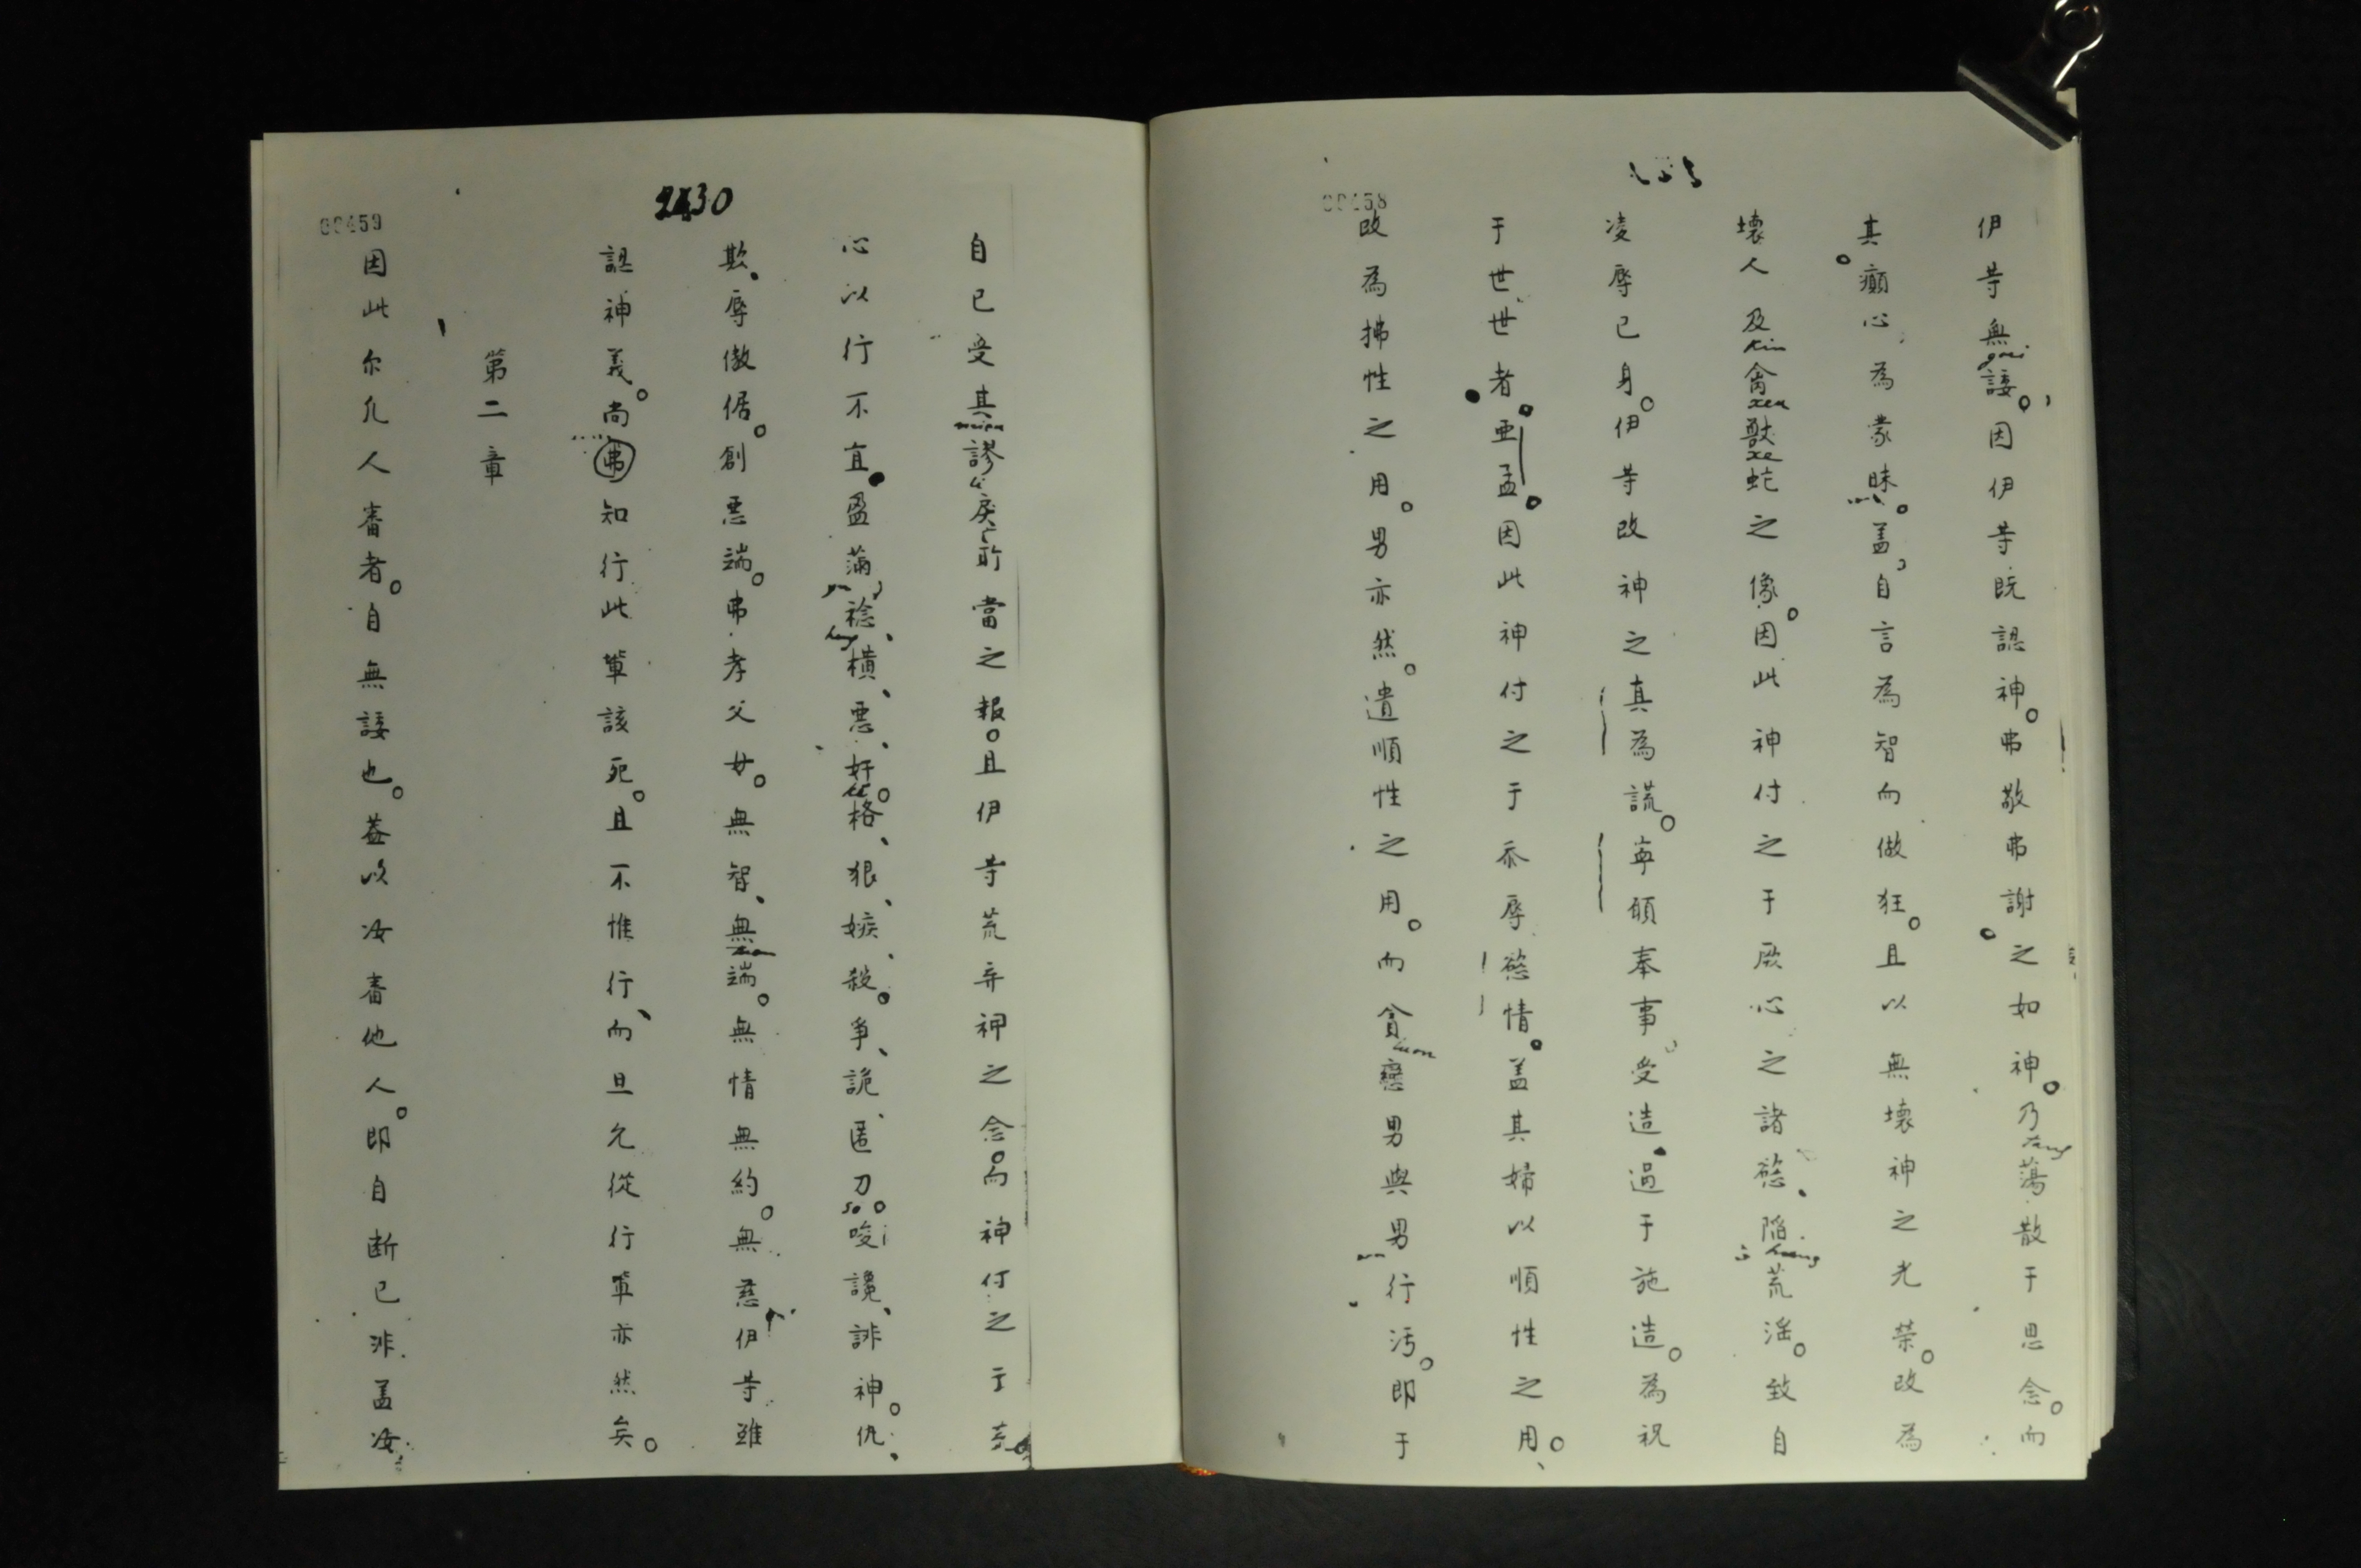 伊等無諉。因伊等既認神。弗敬弗謝之如神。乃蕩散于思念。而
其癲心為蒙昧。盖自言為智而做狂。且以無壞神之光荣。改為
壞人及禽獸蛇之像。因此神付之于厥心之諸慾、陷荒淫。致自
凌辱己身。伊等改神之真為謊。寧願奉事受造、過于施造。為祝
于世世者。亜孟。因此神付之于忝辱慾情。盖其婦以順性之用。
改為拂性之用。男亦然。遺順性之用。而貪戀男與男行污。即于
00458
2430
自己受其謬戾所當之報。且伊等荒弃神之念。而神付之于
心以行不宜。盈滿
橫、悪、奸。
狠、嫉、殺。爭、詭、匿刀。唆讒、誹神。仇、
欺、辱傲倨。創悪端。弗孝父母。無智、無端。無情無約。無慈伊等雖
認神義。尚弗知行此輩該死。且不惟行、而且允從行輩亦然矣。
第二章
因此尔凢人審者。自無諉也。葢以汝審他人。即自断己非盖汝
00459
gnei
kin
xeu
xe